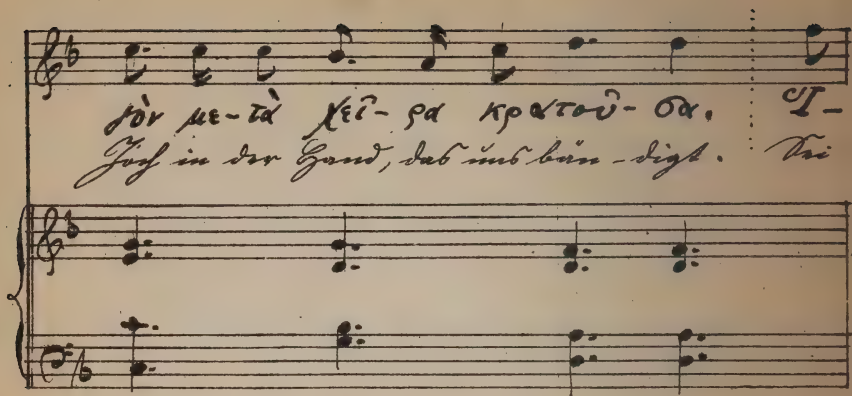 γὸν με-τὰ χεῖ-ρα κρατοῦ-σα. Ἵ-
Joch in der Hand, das uns bän-digt. Sei